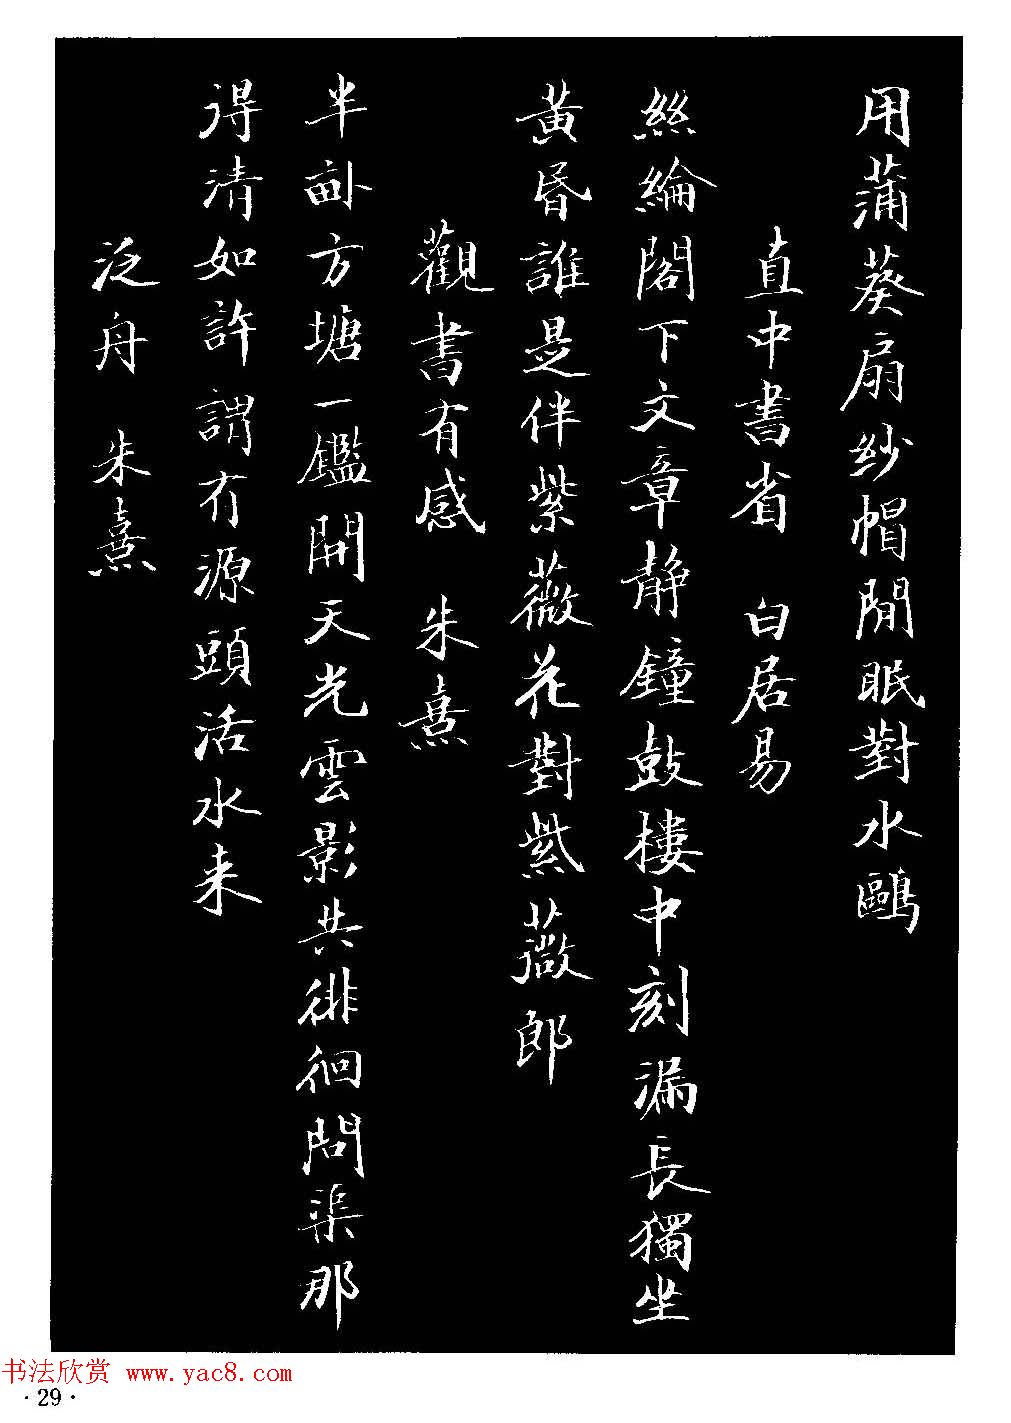 用蒲葵扇紗帽閒眠對水鷗
直中書省 白居易
絲綸閣下文章靜鐘鼓樓中刻漏長獨坐
黃昏誰是伴紫薇花對紫薇郎
觀書有感 朱熹
半畝方塘一鑑開天光雲影共徘徊問渠那
得清如許謂有源頭活水来
泛舟 朱熹
书法欣赏 www.yac8.com
·29·